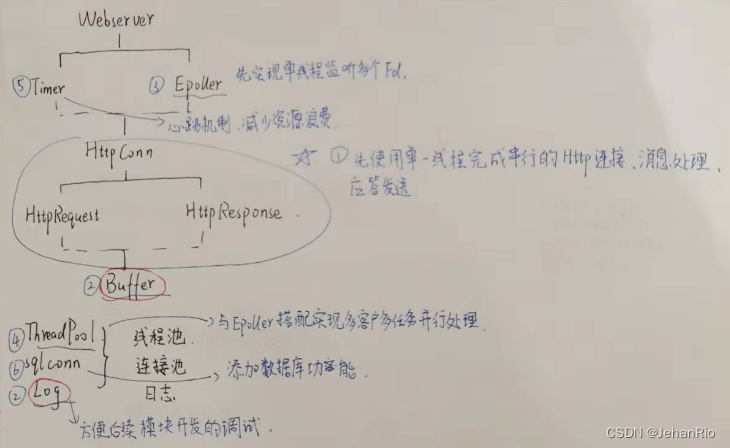 Webserver
⑤ Timer ③ Epoller 先实现单线程监听多个Fd.
心跳机制.减少资源浪费.
HttpConn
☆ ①先使用单一线程完成串行的Http连接、消息处理、
应答发送
HttpRequest HttpResponse.
② Buffer
④ ThreadPool 线程池. 与Epoller搭配实现多客户多任务并行处理.
⑥ sqlconn 连接池 添加数据库功能.
② Log 日志
方便后续模块开发的调试.
CSDN @JehanRio